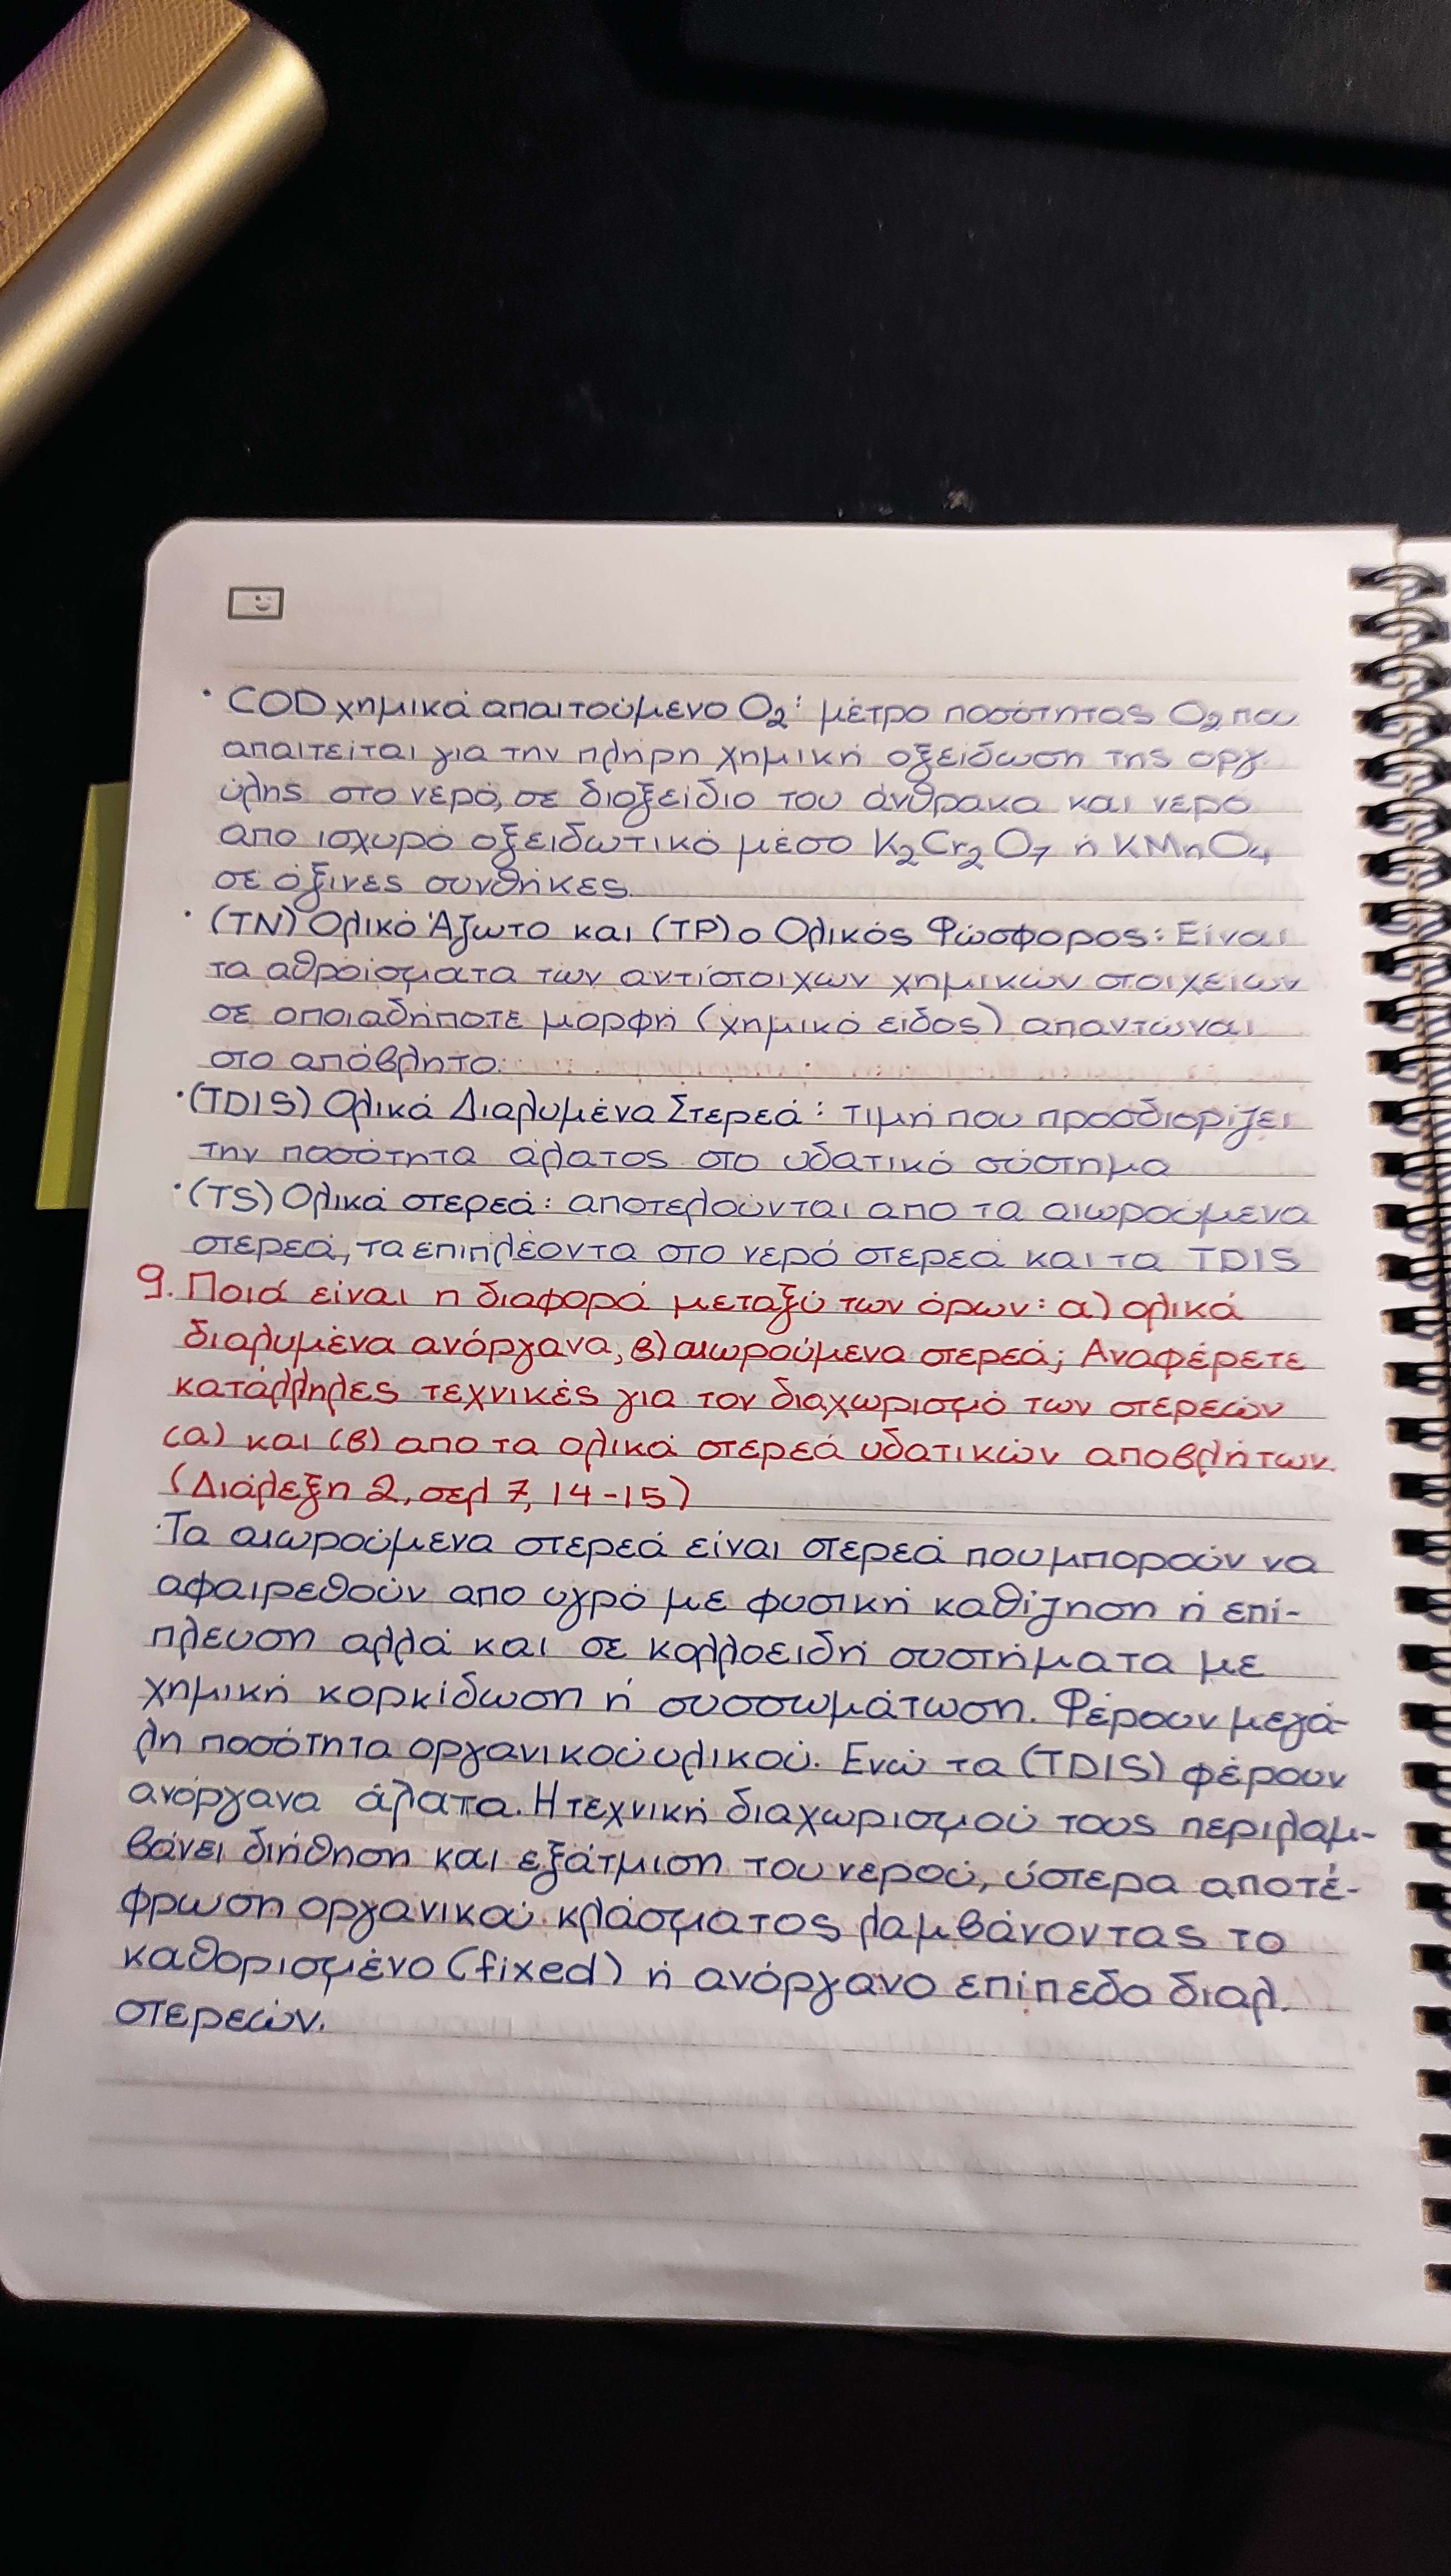 · COD χημικά απαιτούμενο O₂: μέτρο ποσότητας O₂ που
απαιτείται για την πλήρη χημική οξείδωση της οργ.
ύλης στο νερό, σε διοξείδιο του άνθρακα και νερό
απο ισχυρό οξειδωτικό μέσο K₂Cr₂O₇ ή KMnO₄
σε όξινες συνθήκες.
· (TN) Ολικό Άζωτο και (TP) ο Ολικός Φώσφορος: Είναι
τα αθροίσματα των αντίστοιχων χημικών στοιχείων
σε οποιαδήποτε μορφή (χημικό είδος) απαντώναι
στο απόβλητο.
· (TDIS) Ολικά Διαλυμένα Στερεά: τιμή που προσδιορίζει
την ποσότητα άλατος στο υδατικό σύστημα
· (TS) Ολικά στερεά: αποτελούνται απο τα αιωρούμενα
στερεά, τα επιπλέοντα στο νερό στερεά και τα TDIS
9. Ποιά είναι η διαφορά μεταξύ των όρων: α) ολικά
διαλυμένα ανόργανα, β) αιωρούμενα στερεά; Αναφέρετε
κατάλληλες τεχνικές για τον διαχωρισμό των στερεών
(α) και (β) απο τα ολικά στερεά υδατικών αποβλήτων.
(Διάλεξη 2, σελ 7, 14-15)
· Τα αιωρούμενα στερεά είναι στερεά που μπορούν να
αφαιρεθούν απο υγρό με φυσική καθίζηση ή επί-
πλευση αλλά και σε κολλοειδή συστήματα με
χημική κορκίδωση ή συσσωμάτωση. Φέρουν μεγά-
λη ποσότητα οργανικού υλικού. Ενώ τα (TDIS) φέρουν
ανόργανα άλατα. Η τεχνική διαχωρισμού τους περιλαμ-
βάνει διήθηση και εξάτμιση του νερού, ύστερα αποτέ-
φρωση οργανικού κλάσματος λαμβάνοντας το
καθορισμένο (fixed) ή ανόργανο επίπεδο διαλ.
στερεών.